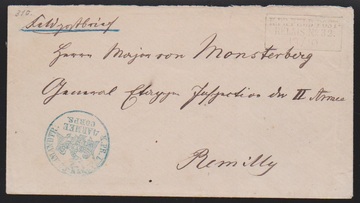 Feldpostbrief
Herrn Major von Monsterberg
General Etappen Inspection der II Armee
Remilly
ARMEE
CORPS